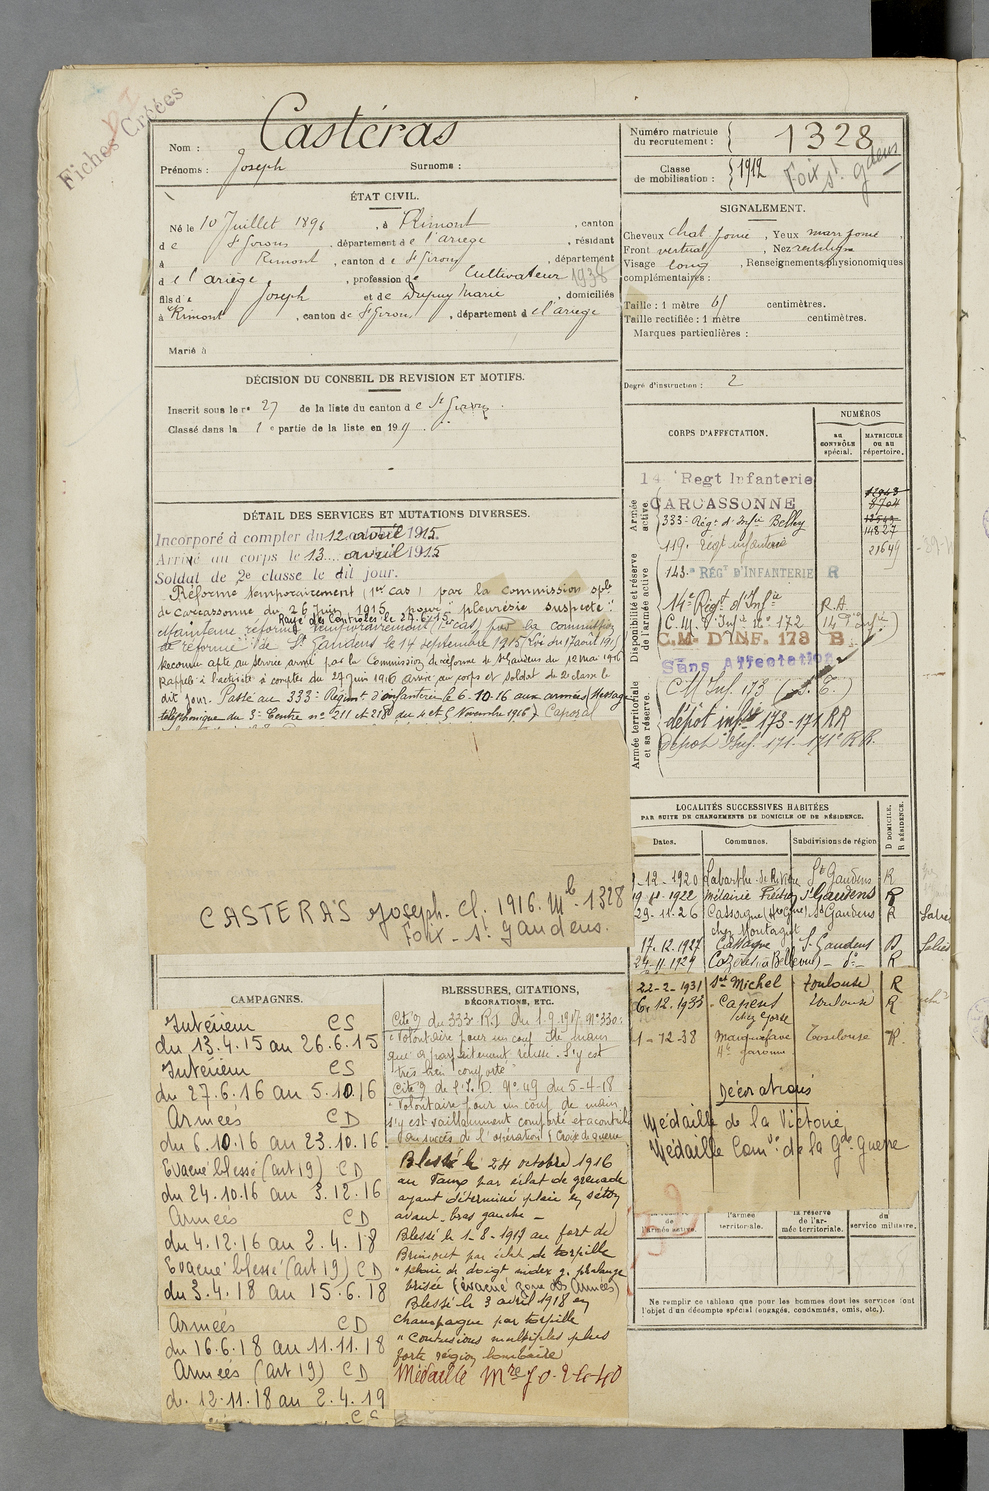 Fiches Créées
Nom : Castéras
Prénoms : Joseph Surnome :
Numéro matricule du recrutement : 1328
Classe de mobilisation : 1912
Foix St. gdens
ÉTAT CIVIL.
Né le 10 Juillet 1896, à Rimont, canton
de St Girons, département de l'ariège, résidant
à Rimont, canton de St Girons, département
de l'ariège, profession de Cultivateur 1938
fils de Joseph et de Dupuy Marie, domiciliés
à Rimont, canton de St Girons, département de l'ariège
Marié à
SIGNALEMENT.
Cheveux chat foncé, Yeux marr foncé,
Front vertical, Nez rectiligne
Visage long, Renseignements physionomiques
complémentaires :
Taille : 1 mètre 61 centimètres.
Taille rectifiée : 1 mètre centimètres.
Marques particulières :
Degré d'instruction : 2
DÉCISION DU CONSEIL DE REVISION ET MOTIFS.
Inscrit sous le no 27 de la liste du canton de St Girons.
Classé dans la 1e partie de la liste en 19
CORPS D'AFFECTATION.
NUMÉROS
au CONTRÔLE spécial.
MATRICULE OU AU répertoire.
Armée active.
Regt Infanterie
CARCASSONNE
333e Régt d'Infie Belley
119e régt infanterie
21649
Disponibilité et réserve de l'armée active
143e RÉGT D'INFANTERIE R
14e Régt d'Infie R.A.
C.M. d'Inf. no 172 (14e d'Infie)
C.M. D'INF. 173 B.
Sans Affectation
Armée territoriale et sa réserve.
CM Inf. 173
dépôt infie 173-171 RR
dépot Inf. 171-171e RR.
DÉTAIL DES SERVICES ET MUTATIONS DIVERSES.
Incorporé à compter du 12 avril 1915.
Arrivé au corps le 13 avril 1915
Soldat de 2e classe le dit jour.
Réformé temporairement (1er cas) par la commission sple
de carcassonne du 26 juin 1915 pour "pleurésie suspecte".
Rayé des Contrôles le 27.6.15
Maintenu réformé temporairement (1er cas) par la commission
de réforme de St Gaudens le 14 septembre 1915 (Loi du 17 août 1915)
Reconnu apte au service armé par la Commission de réforme de St Gaudens du 12 mai 1916
Rappelé à l'activité à compter du 27 juin 1916 arrivé au corps et soldat de 2e classe le
dit jour. Passé au 333e Régiment d'infanterie le 6-10-16 aux armées (Message
téléphonique du 3e Centre nos 211 et 218 du 4 et 5 Novembre 1916). Caporal
CASTERAS Joseph. Cl. 1916. Mle 1328
Foix - St Gaudens.
LOCALITÉS SUCCESSIVES HABITÉES
PAR SUITE DE CHANGEMENTS DE DOMICILE OU DE RÉSIDENCE.
Dates. Communes. Subdivisions de région D DOMICILE. R RÉSIDENCE.
-12-1920 Labarthe de Rivière St Gaudens R
1922 métairie St Gaudens R
29-11-26 Cassagne (Hte Gne) St Gaudens R
chez Montagut
17.12.1927 Cassagne St Gaudens D
24-11-1929 Cazères à Bellevue - do - R
22-2-1931 St Michel Toulouse R
6.12.1935 Capens Toulouse R
chez Gorse
1-12-38 Marquefave Toulouse R.
Hte Garonne
Décorations
Médaille de la Victoire
Médaille Comve de la Gde guerre
l'armée active.
l'armée territoriale.
la réserve de l'armée territoriale.
du service militaire.
Ne remplir ce tableau que pour les hommes dont les services font
l'objet d'un décompte spécial (engagés, condamnés, omis, etc.).
CAMPAGNES.
Intérieur CS
du 13.4.15 au 26.6.15
Intérieur CS
du 27.6.16 au 5.10.16
Armées CD
du 6.10.16 au 23.10.16
Evacué blessé (art 19) CD
du 24.10.16 au 3.12.16
Armées CD
du 4.12.16 au 2.4.18
Evacué blessé (art 19) CD
du 3.4.18 au 15.6.18
Armées CD
du 16.6.18 au 11.11.18
Armées (art 19) CD
du 12.11.18 au 2.4.19
BLESSURES, CITATIONS,
DÉCORATIONS, ETC.
Citon du 333 R.I. Du 1.9.1917 No 330:
"Volontaire pour un coup de main
que a parfaitement réussi. S'y est
très bien comporté"
Citon de l'I.D. No 49 du 5-4-18
"Volontaire pour un coup de main
s'y est vaillamment comporté et a contribué
au succès de l'opération (Croix de guerre
Blessé le 24 octobre 1916
au Vaux par éclat de grenade
ayant déterminé plaie en séton
avant-bras gauche -
Blessé le 1-8-1917 au fort de
Brimont par éclat de torpille
"plaie de doigt index 2e phalange
brisée (évacué zone des Armées)
Blessé le 3 avril 1918 en
champagne par torpille
"Contusions multiples plus
forte région lombaire
Médaille Mre J O. 2-4-40